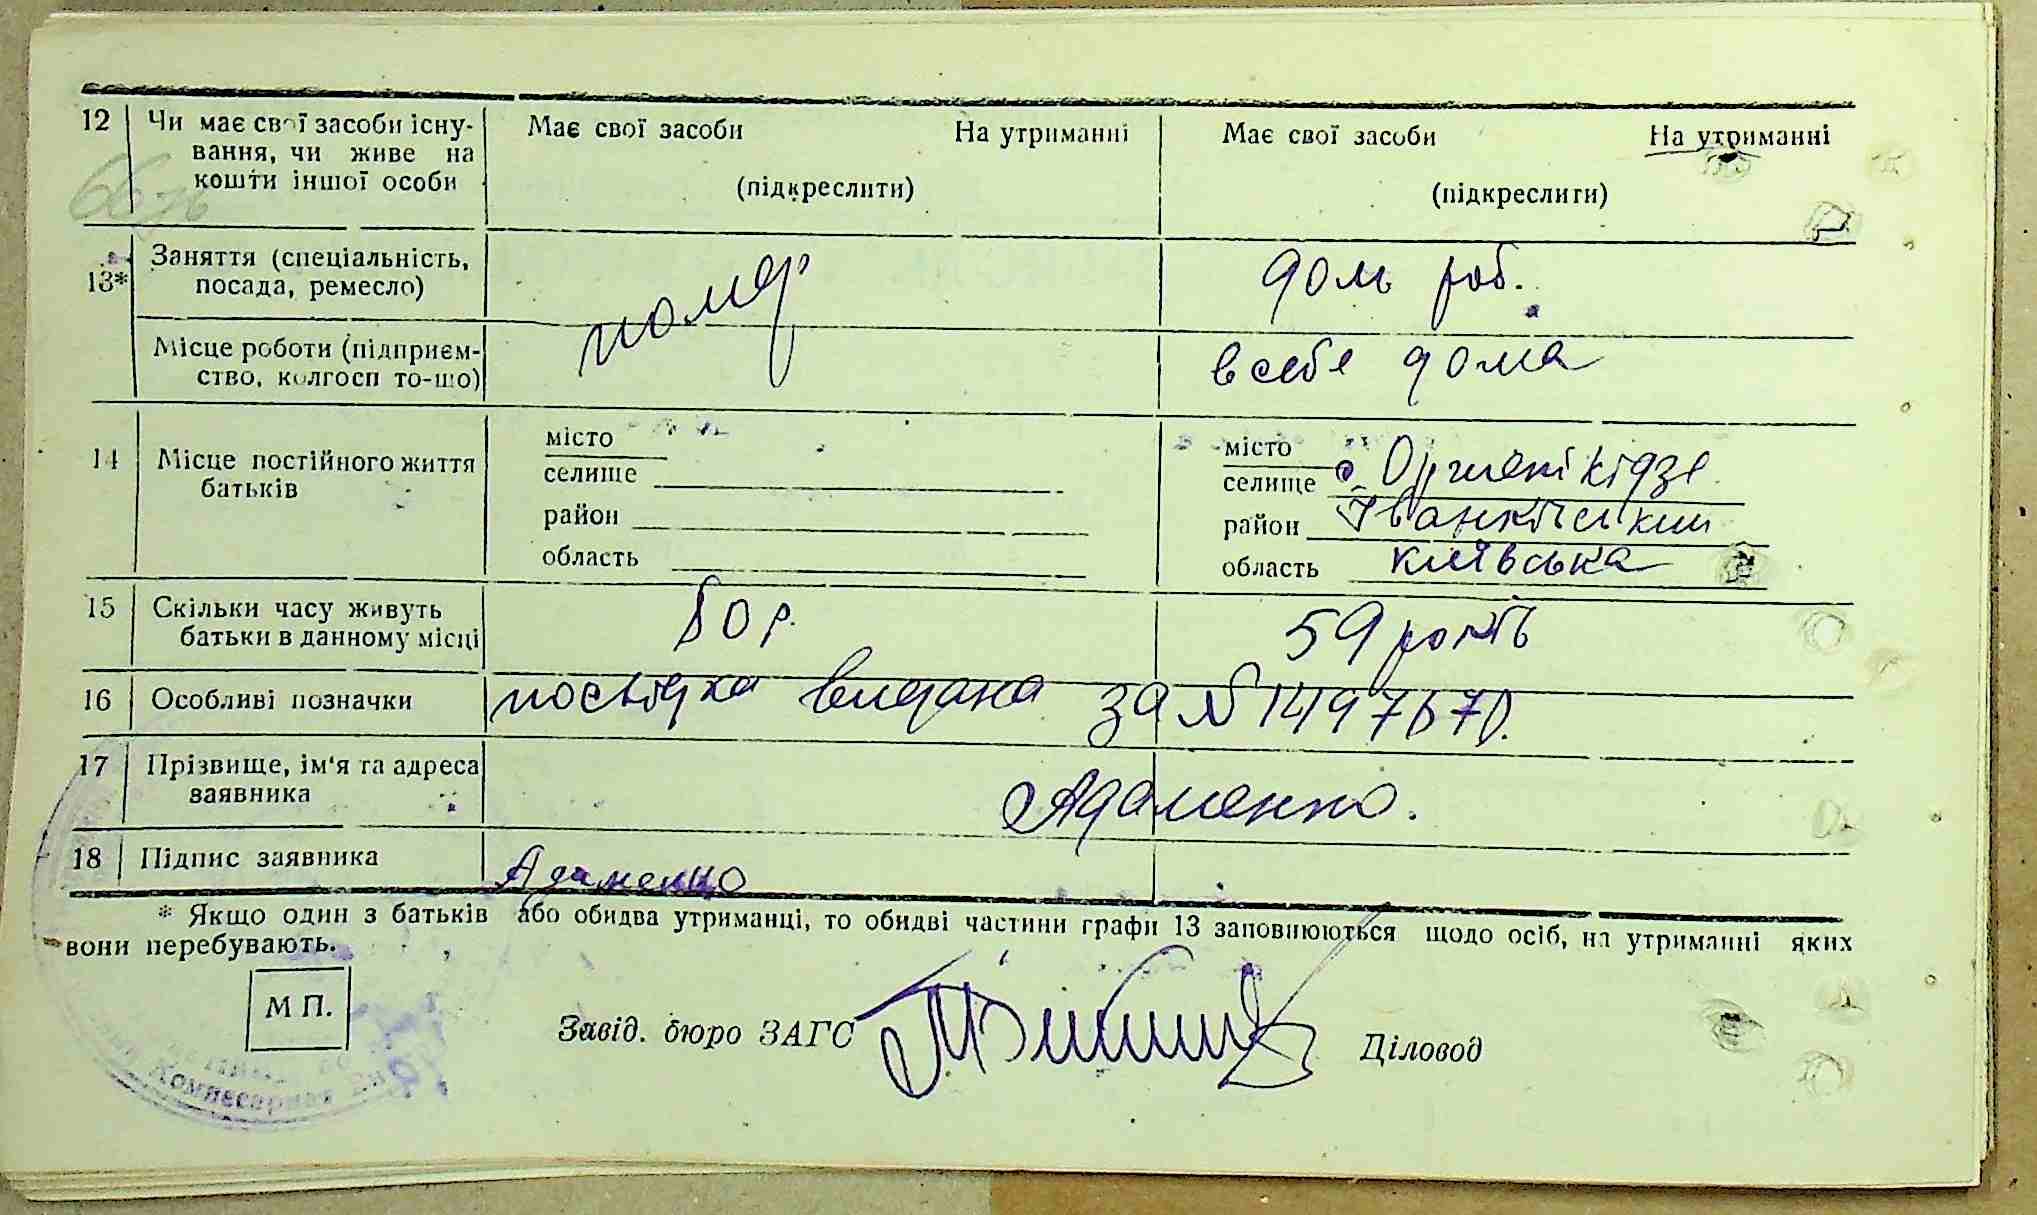 12 Чи має свої засоби існу- Має свої засоби На утриманні Має свої засоби На утриманні
вання, чи живе на
кошти іншої особи (підкреслити) (підкреслити)
13* Заняття (спеціальність, помер дом роб.
посада, ремесло)
Місце роботи (підприєм- в себе дома
ство, колгосп то-що)
14 Місце постійного життя місто місто
батьків селище селище с. Орженікідзе
район район Іванківський
область область київська
15 Скільки часу живуть 80 р. 59 років
батьки в данному місці
16 Особливі позначки посвідка видана за №
17 Прізвище, ім'я та адреса Адаменко.
заявника
18 Підпис заявника Адаменко
* Якщо один з батьків або обидва утриманці, то обидві частини графи 13 заповнюються щодо осіб, на утриманні яких
вони перебувають.
М П.
Завід. бюро ЗАГС Діловод